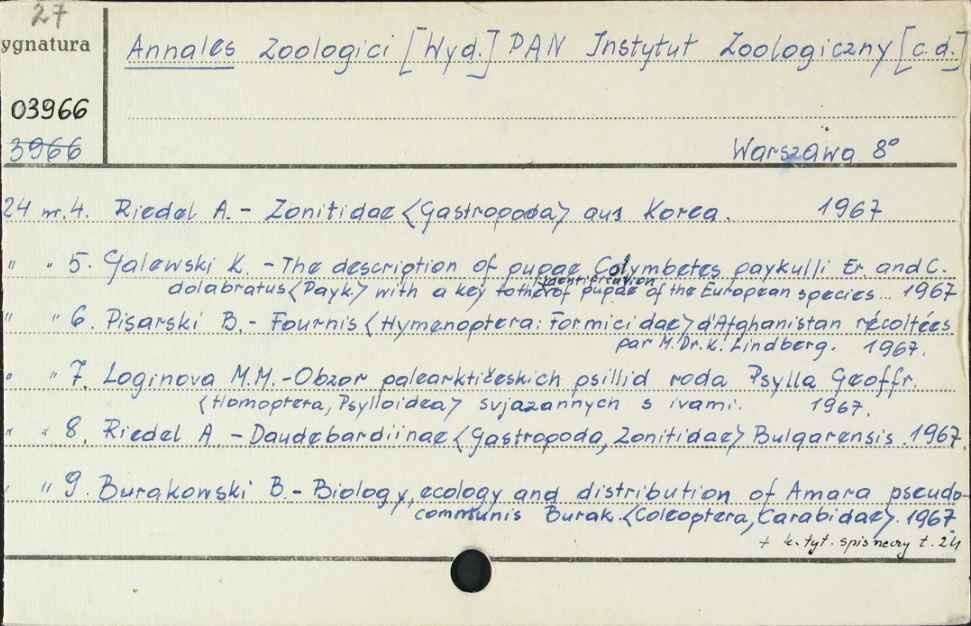 27
ygnatura
Annales Zoologici [Wyd.] PAN Instytut Zoologiczny [c.d.]
03966
3966
Warszawa 8°
24 nr. 4. Riedel A. - Zonitidae <Gastropoda> aus Korea. 1967
" " 5. Galewski K. - The description of pupae Colymbetes paykulli Er. and C.
identification
dolabratus <Payk.> with a key to the of pupae of the European species... 1967
" " 6. Pisarski B. - Fournis <Hymenoptera: Formicidae> d'Afghanistan récoltées
par M. Dr. K. Lindberg. 1967.
" " 7. Loginova M.M. - Obzor palearktičeskich psillid roda Psylla Geoffr.
<Homoptera, Psylloidea> svjazannych s ivami. 1967.
" " 8. Riedel A. - Daudebardiinae <Gastropoda, Zonitidae> Bulgarensis. 1967.
" " 9. Burakowski B. - Biology, ecology and distribution of Amara pseudo-
communis Burak. <Coleoptera, Carabidae>. 1967.
+ k. tyt. spis rzeczy t. 24